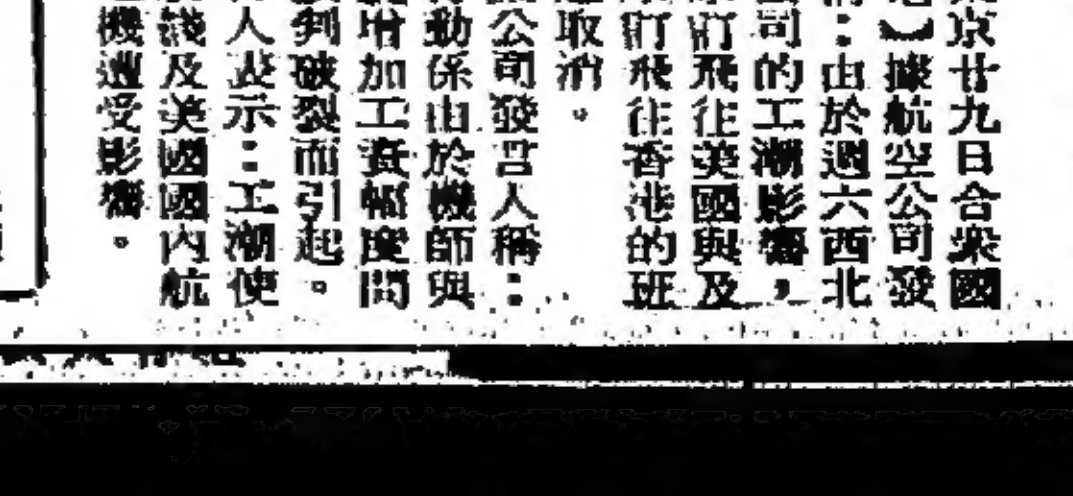 京廿九日合衆國
】據航空公司發
：由於週六西北
司的工潮影響，
飛往美國與及
飛往香港的班
取消。
公司發言人稱：
動係由於機師與
增加工資幅度問
判破裂而引起。
人表示：工潮使
綫及美國國內航
機遭受影響。